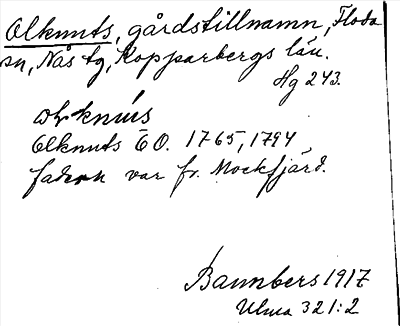 Olknuts, gårdstillnamn, Floda
sn, Nås tg, Kopparbergs län.
Hg 243.
Olknuts EO. 1765, 1794
fadern var fr. Mockfjärd.
Bannbers 1917
Ulma 321:2